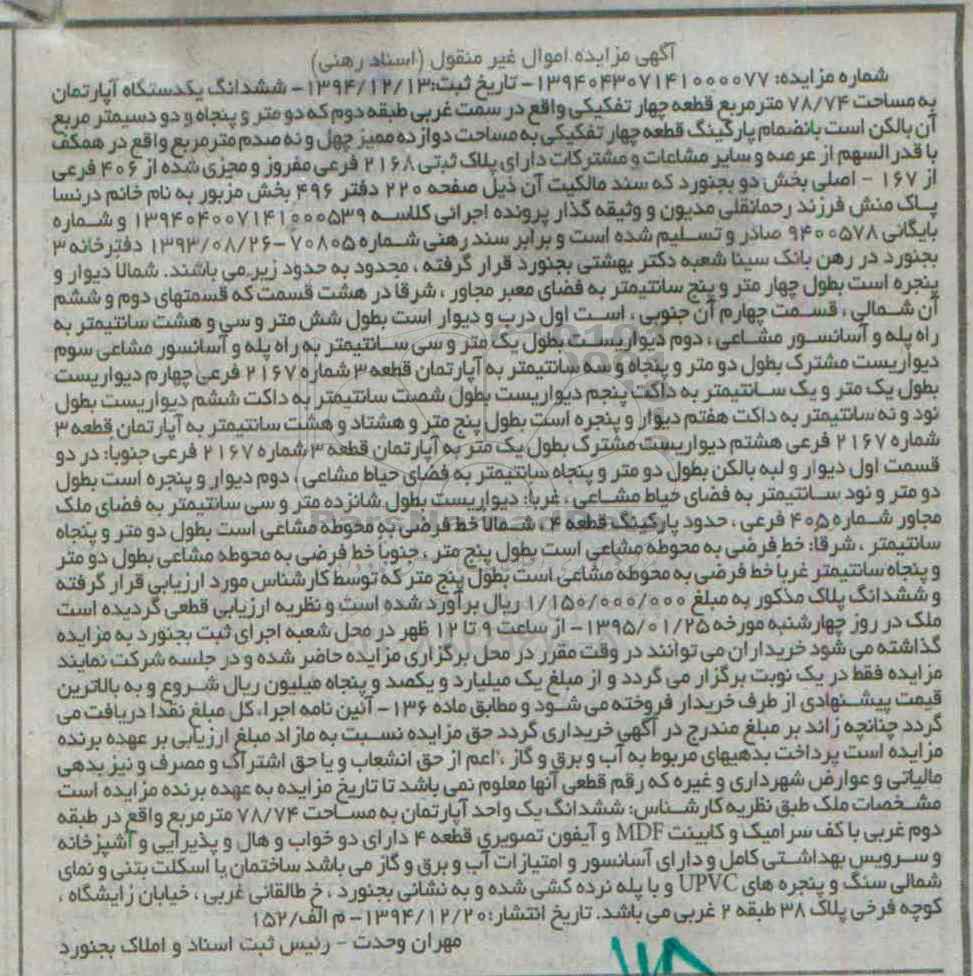 آگهی مزایده اموال غیر منقول (اسناد رهنی)
شماره مزایده: ۱۳۹۴۰۴۳۰۷۱۴۱۰۰۰۰۷۷- تاریخ ثبت:۱۳۹۴/۱۲/۱۳- ششدانگ یکدستگاه آپارتمان
به مساحت ۷۸/۷۴ مترمربع قطعه چهار تفکیکی واقع در سمت غربی طبقه دوم که دو متر و پنجاه و دو دسیمتر مربع
آن بالکن است بانضمام پارکینگ قطعه چهار تفکیکی به مساحت دوازده ممیز چهل و نه صدم مترمربع واقع در همکف
با قدرالسهم از عرصه و سایر مشاعات و مشترکات دارای پلاک ثبتی ۲۱۶۸ فرعی مفروز و مجزی شده از ۴۰۶ فرعی
از ۱۶۷ - اصلی بخش دو بجنورد که سند مالکیت آن ذیل صفحه ۲۲۰ دفتر ۴۹۶ بخش مزبور به نام خانم درنسا
پاک منش فرزند رحمانقلی مدیون و وثیقه گذار پرونده اجرائی کلاسه ۱۳۹۴۰۴۰۰۷۱۴۱۰۰۰۵۳۹ و شماره
بایگانی ۹۴۰۰۵۷۸ صادر و تسلیم شده است و برابر سند رهنی شماره ۷۰۸۰۵-۱۳۹۳/۰۸/۲۶ دفترخانه ۳
بجنورد در رهن بانک سینا شعبه دکتر بهشتی بجنورد قرار گرفته ، محدود به حدود زیر می باشند. شمالا دیوار و
پنجره است بطول چهار متر و پنج سانتیمتر به فضای معبر مجاور ، شرقا در هشت قسمت که قسمتهای دوم و ششم
آن شمالی ، قسمت چهارم آن جنوبی ، است اول درب و دیوار است بطول شش متر و سی و هشت سانتیمتر به
راه پله و آسانسور مشاعی ، دوم دیواریست بطول یک متر و سی سانتیمتر به راه پله و آسانسور مشاعی سوم
دیواریست مشترک بطول دو متر و پنجاه و سه سانتیمتر به آپارتمان قطعه ۳ شماره ۲۱۶۷ فرعی چهارم دیواریست
بطول یک متر و یک سانتیمتر به داکت پنجم دیواریست بطول شصت سانتیمتر به داکت ششم دیواریست بطول
نود و نه سانتیمتر به داکت هفتم دیوار و پنجره است بطول پنج متر و هشتاد و هشت سانتیمتر به آپارتمان قطعه ۳
شماره ۲۱۶۷ فرعی هشتم دیواریست مشترک بطول یک متر به آپارتمان قطعه ۳ شماره ۲۱۶۷ فرعی جنوبا: در دو
قسمت اول دیوار و لبه بالکن بطول دو متر و پنجاه سانتیمتر به فضای حیاط مشاعی ، دوم دیوار و پنجره است بطول
دو متر و نود سانتیمتر به فضای حیاط مشاعی ، غربا: دیواریست بطول شانزده متر و سی سانتیمتر به فضای ملک
مجاور شماره ۴۰۵ فرعی ، حدود پارکینگ قطعه ۴ ، شمالا خط فرضی به محوطه مشاعی است بطول دو متر و پنجاه
سانتیمتر ، شرقا: خط فرضی به محوطه مشاعی است بطول پنج متر ، جنوبا خط فرضی به محوطه مشاعی بطول دو متر
و پنجاه سانتیمتر غربا خط فرضی به محوطه مشاعی است بطول پنج متر که توسط کارشناس مورد ارزیابی قرار گرفته
و ششدانگ پلاک مذکور به مبلغ ۱/۱۵۰/۰۰۰/۰۰۰ ریال برآورد شده است و نظریه ارزیابی قطعی گردیده است
ملک در روز چهارشنبه مورخه ۱۳۹۵/۰۱/۲۵- از ساعت ۹ تا ۱۲ ظهر در محل شعبه اجرای ثبت بجنورد به مزایده
گذاشته می شود خریداران می توانند در وقت مقرر در محل برگزاری مزایده حاضر شده و در جلسه شرکت نمایند
مزایده فقط در یک نوبت برگزار می گردد و از مبلغ یک میلیارد و یکصد و پنجاه میلیون ریال شروع و به بالاترین
قیمت پیشنهادی از طرف خریدار فروخته می شود و مطابق ماده ۱۳۶- آئین نامه اجرا، کل مبلغ نقدا دریافت می
گردد چنانچه زائد بر مبلغ مندرج در آگهی خریداری گردد حق مزایده نسبت به مازاد مبلغ ارزیابی بر عهده برنده
مزایده است پرداخت بدهیهای مربوط به آب و برق و گاز ، اعم از حق انشعاب و یا حق اشتراک و مصرف و نیز بدهی
مالیاتی و عوارض شهرداری و غیره که رقم قطعی آنها معلوم نمی باشد تا تاریخ مزایده به عهده برنده مزایده است
مشخصات ملک طبق نظریه کارشناس: ششدانگ یک واحد آپارتمان به مساحت ۷۸/۷۴ مترمربع واقع در طبقه
دوم غربی با کف سرامیک و کابینت MDF و آیفون تصویری قطعه ۴ دارای دو خواب و هال و پذیرایی و آشپزخانه
و سرویس بهداشتی کامل و دارای آسانسور و امتیازات آب و برق و گاز می باشد ساختمان با اسکلت بتنی و نمای
شمالی سنگ و پنجره های UPVC و با پله نرده کشی شده و به نشانی بجنورد ، خ طالقانی غربی ، خیابان زایشگاه ،
کوچه فرخی پلاک ۳۸ طبقه ۲ غربی می باشد. تاریخ انتشار: ۱۳۹۴/۱۲/۲۰- م الف/۱۵۲
مهران وحدت - رئیس ثبت اسناد و املاک بجنورد